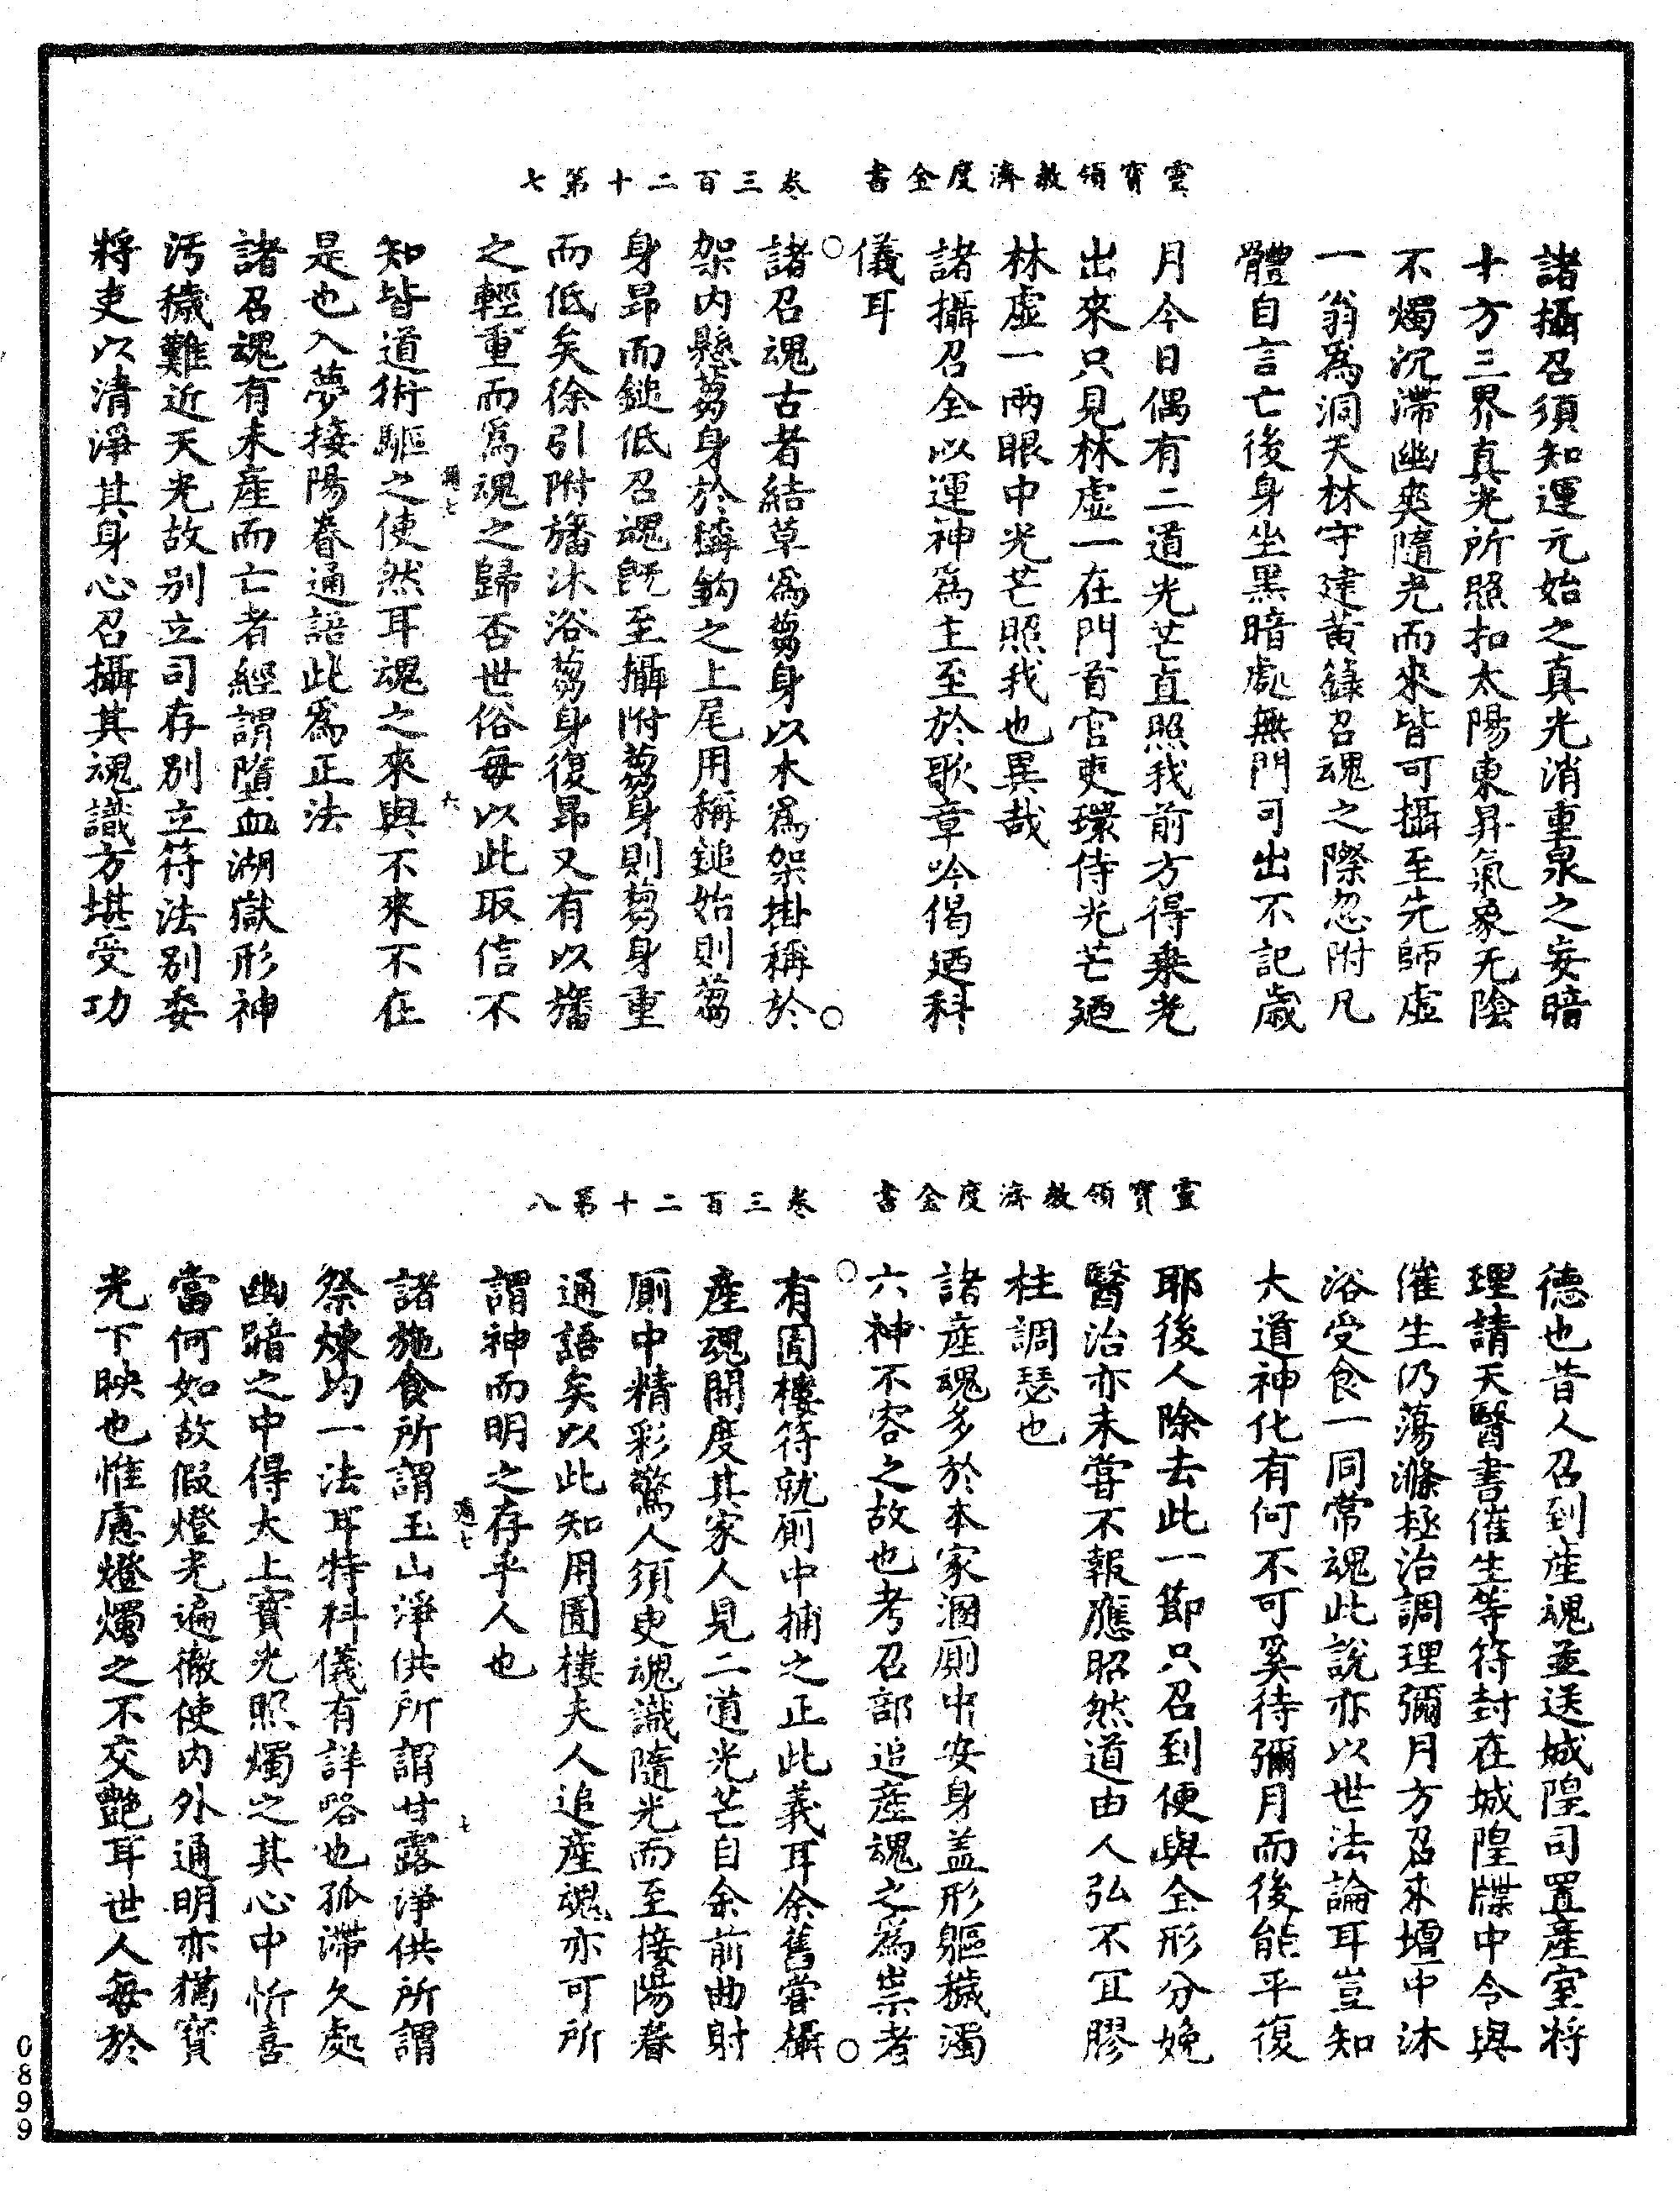 靈寶領教濟度金書　卷三百二十第七
諸攝召須知運元始之真光消重泉之妄暗
十方三界真光所照扣太陽東昇氣象无陰
不燭沉滯幽爽隨光而來皆可攝至先師虛
一翁爲洞天林守建黃籙召魂之際忽附凡
體自言亡後身坐黑暗處無門可出不記歲
月今日偶有二道光芒直照我前方得乘光
出來只見林虛一在門首官吏環侍光芒廼
林虛一兩眼中光芒照我也異哉
諸攝召全以運神爲主至於歌章吟偈廼科
儀耳
諸召魂古者結草爲蒭身以木爲架掛稱於
架内懸蒭身於稱鈎之上尾用稱鎚始則蒭
身昂而鎚低召魂旣至攝附蒭身則蒭身重
而低矣徐引附旛沐浴蒭身復昂又有以旛
之輕重而爲魂之歸否世俗每以此取信不
知皆道術驅之使然耳魂之來與不來不在
是也入夢接陽眷通語此爲正法
諸召魂有未產而亡者經謂墮血湖獄形神
汚穢難近天光故别立司存别立符法别委
將吏以清淨其身心召攝其魂識方堪受功
靈寶領教濟度金書　卷三百二十第八
德也昔人召到產魂並送城隍司置產室將
理請天醫書催生等符封在城隍牒中令與
催生仍蕩滌極治調理彌月方召來壇中沐
浴受食一同常魂此說亦以世法論耳豈知
大道神化有何不可奚待彌月而後能平復
耶後人除去此一節只召到便與全形分娩
醫治亦未嘗不報應昭然道由人弘不冝膠
柱調瑟也
諸產魂多於本家溷厠中安身盖形軀穢濁
六神不容之故也考召部追產魂之爲祟者
有圊樓符就厠中捕之正此義耳余舊嘗攝
產魂開度其家人見二道光芒自余前曲射
厠中精彩驚人須臾魂識隨光而至接陽眷
通語矣以此知用圊樓夫人追產魂亦可所
謂神而明之存乎人也
諸施食所謂玉山淨供所謂甘露淨供所謂
祭煉均一法耳特科儀有詳略也孤滯久處
幽暗之中得太上寶光照燭之其心中忻喜
當何如故假燈光遍徹使内外通明亦猶寶
光下映也惟慮燈燭之不交艷耳世人每於
0899